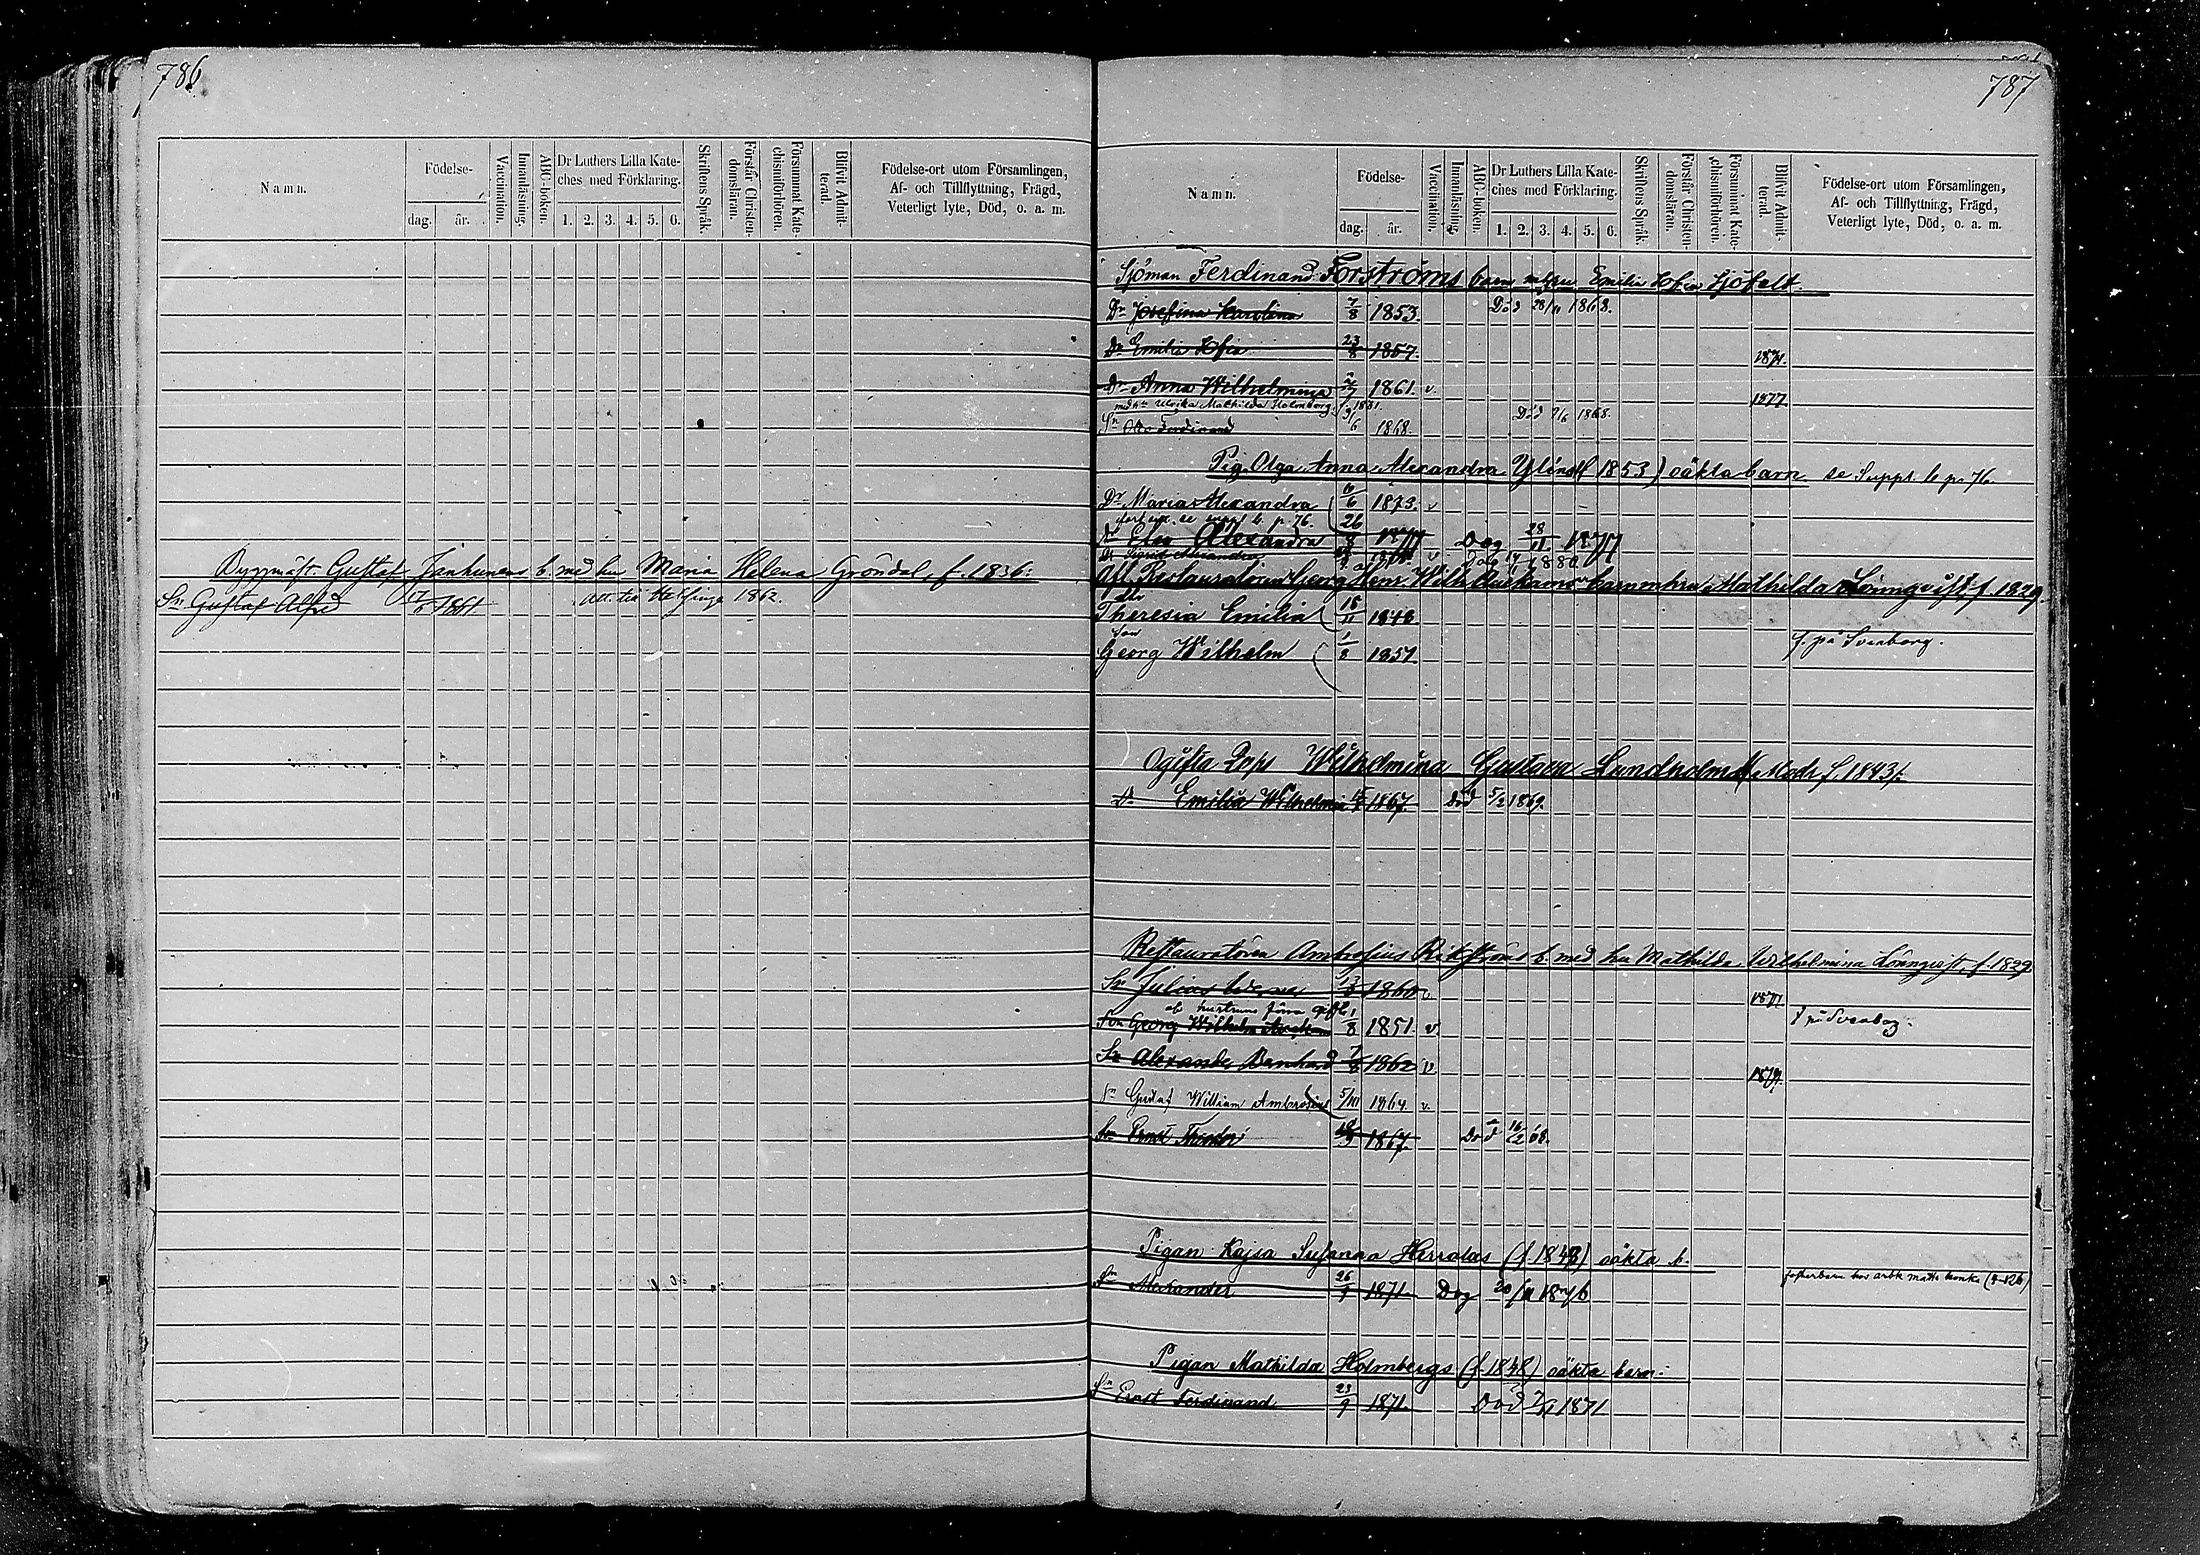 786
Namn. Födelse- dag. år. Vaccination. Innanläsning. ABC-boken. Dr Luthers Lilla Kateches med Förklaring. 1. 2. 3. 4. 5. 6. Skriftens Språk. Förstår Christendomsläran. Försummat Katechismiförhören. Blifvit Admitterad. Födelse-ort utom Församlingen, Af- och Tillflyttning, Frägd, Veterligt lyte, Död, o. a. m.
Byggmäst. Gustaf Jankunens b. med hu Maria Helena Gröndal, f. 1836.
Sn Gustaf Alfrd 1861 att. till Helsinge 1862.
787
Namn. Födelse- dag. år. Vaccination. Innanläsning. ABC-boken. Dr Luthers Lilla Kateches med Förklaring. 1. 2. 3. 4. 5. 6. Skriftens Språk. Förstår Christendomsläran. Försummat Katechismiförhören. Blifvit Admitterad. Födelse-ort utom Församlingen, Af- och Tillflyttning, Frägd, Veterligt lyte, Död, o. a. m.
Sjöman Ferdinand Forströms barn m hu Emilia Sofia Sjöfelt.
Dr Josefina Karolina 7/8 1853. Död 28/11 1868.
Dr Emilia Sofia 23/8 1857. 1874.
Dr Anna Wilhelmina 1861. v. 1877
med hu Ulrika Mathilda Holmberg f. 1831.
Sn Otto Ferdinand 9/6 1868. Död 9/6 1868.
Pig. Olga Anna Alexandra (1853) oäkta barn se Suppl. b p. 76
Dr Maria Alexandra 6/6 1873. v
se suppl b. p. 76.
Dr Elsa Alexandra 26/8 1877 Dog 28/11 1877
Dr Sigrid Alexandra v Dog 1880
Afl. Restauratören Georg Henr. Wilh. barn m hu Mathilda Lönnqvist f. 1829.
dtr
Theresia Emilia 18/11 1848.
son
Georg Wilhelm 1/8 1851. f. på Sveaborg.
Ogifta Wilhelmina Gustava Lundholms f. 1843.
Dr Emilia Wilhelmina 1867. Död 5/2 1869.
Restauratören Ambrosius Rikströms b. med hu Mathilda Wilhelmina Lönnqvist, f. 1829
Sn Julius 1860 v 1877
af hustruns förra gifte,
Son Georg Wilhelm 1/8 1851. v f. på Sveaborg.
Sn Alexander Bernhard 7/8 1862 v 1879.
Sn Gustaf William Ambrosius 5/III 1864. v.
Sn Ernst Theodor 1867 Död 16/2 68.
Pigan Kajsa Susanna Herralas (f 1848) oäkta b.
Sn Alexander 26/9 1871 Dog 20/11 1876 fosterbarn hos arbk Matts
Pigan Mathilda Holmbergs (f 1848) oäkta barn.
Sn Ernst Ferdinand 23/9 1871. Död 1871